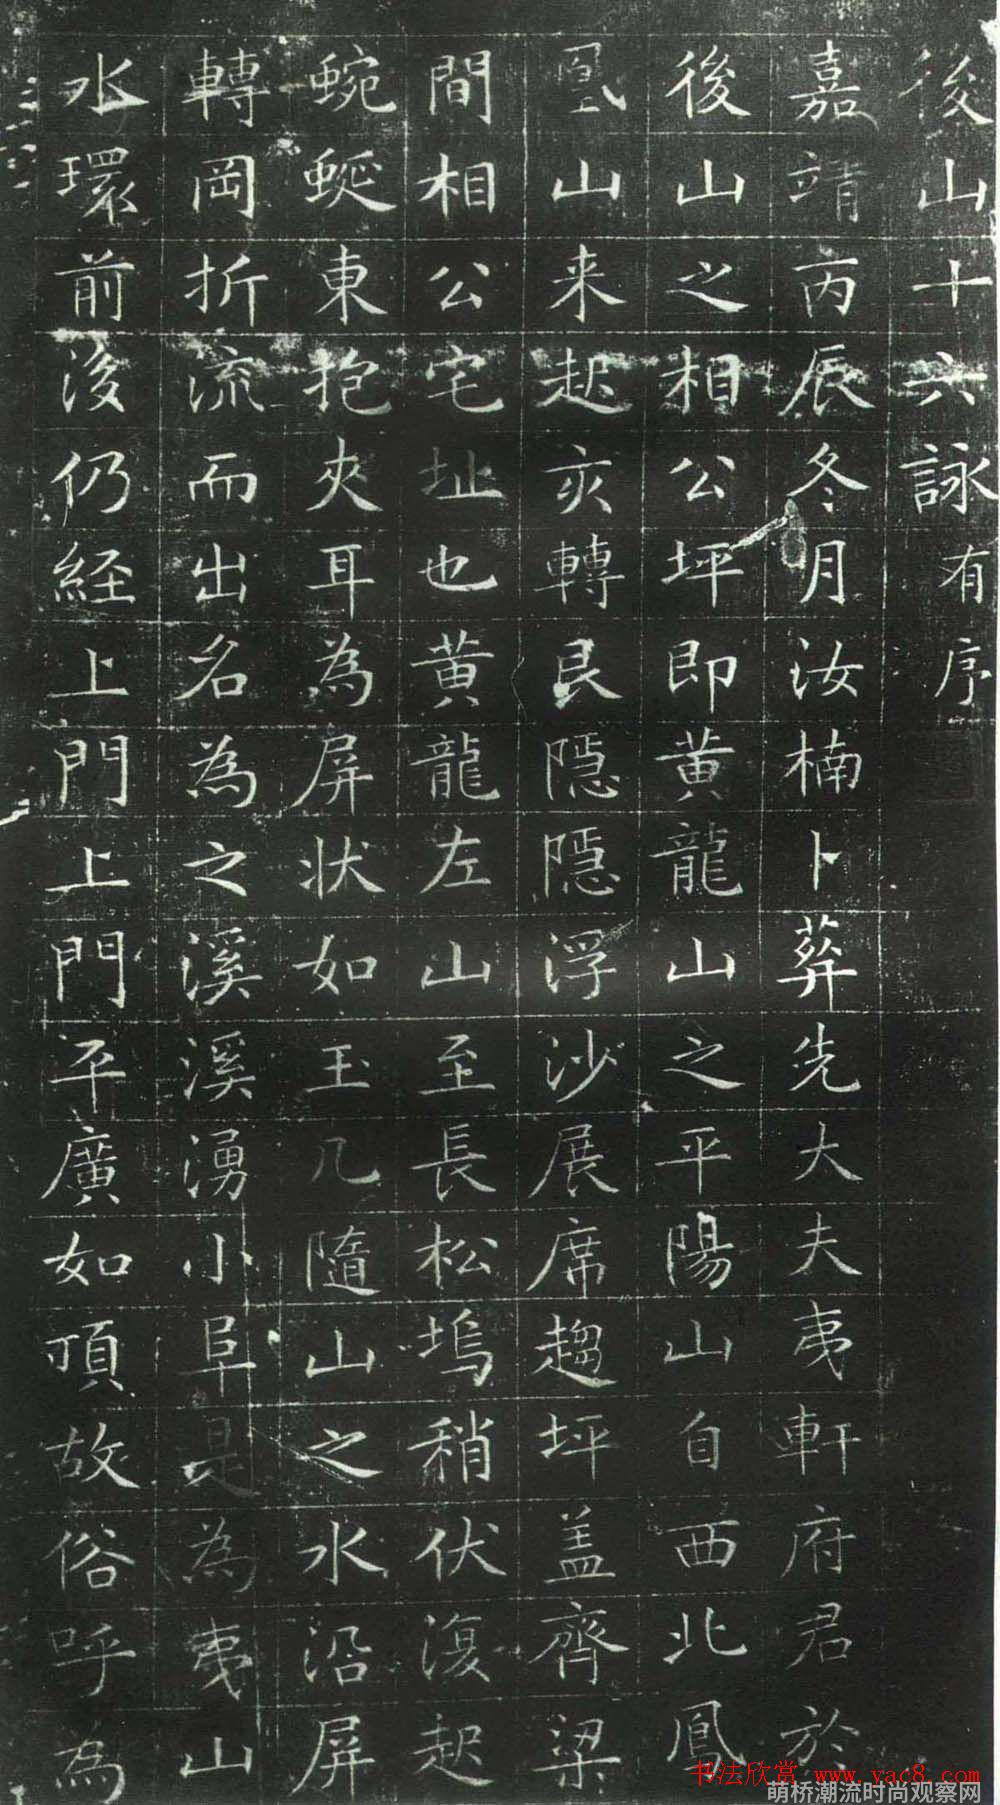 後山十六詠有序
嘉靖丙辰冬月汝楠卜葬先大夫夷軒府君於
後山之相公坪即黄龍山之平陽山自西北鳳
凰山来起亥轉艮隱隱浮沙展席趨坪盖齊梁
間相公宅址也黄龍左山至長松塢稍伏復起
蜿蜒東抱夾耳為屏状如玉几隨山之水沿屏
轉岡折流而出名為之溪溪湧小阜是為夷山
水環前後仍経上門上門平廣如頂故俗呼為
书法欣赏 www.yac8.com
萌桥潮流时尚观察网